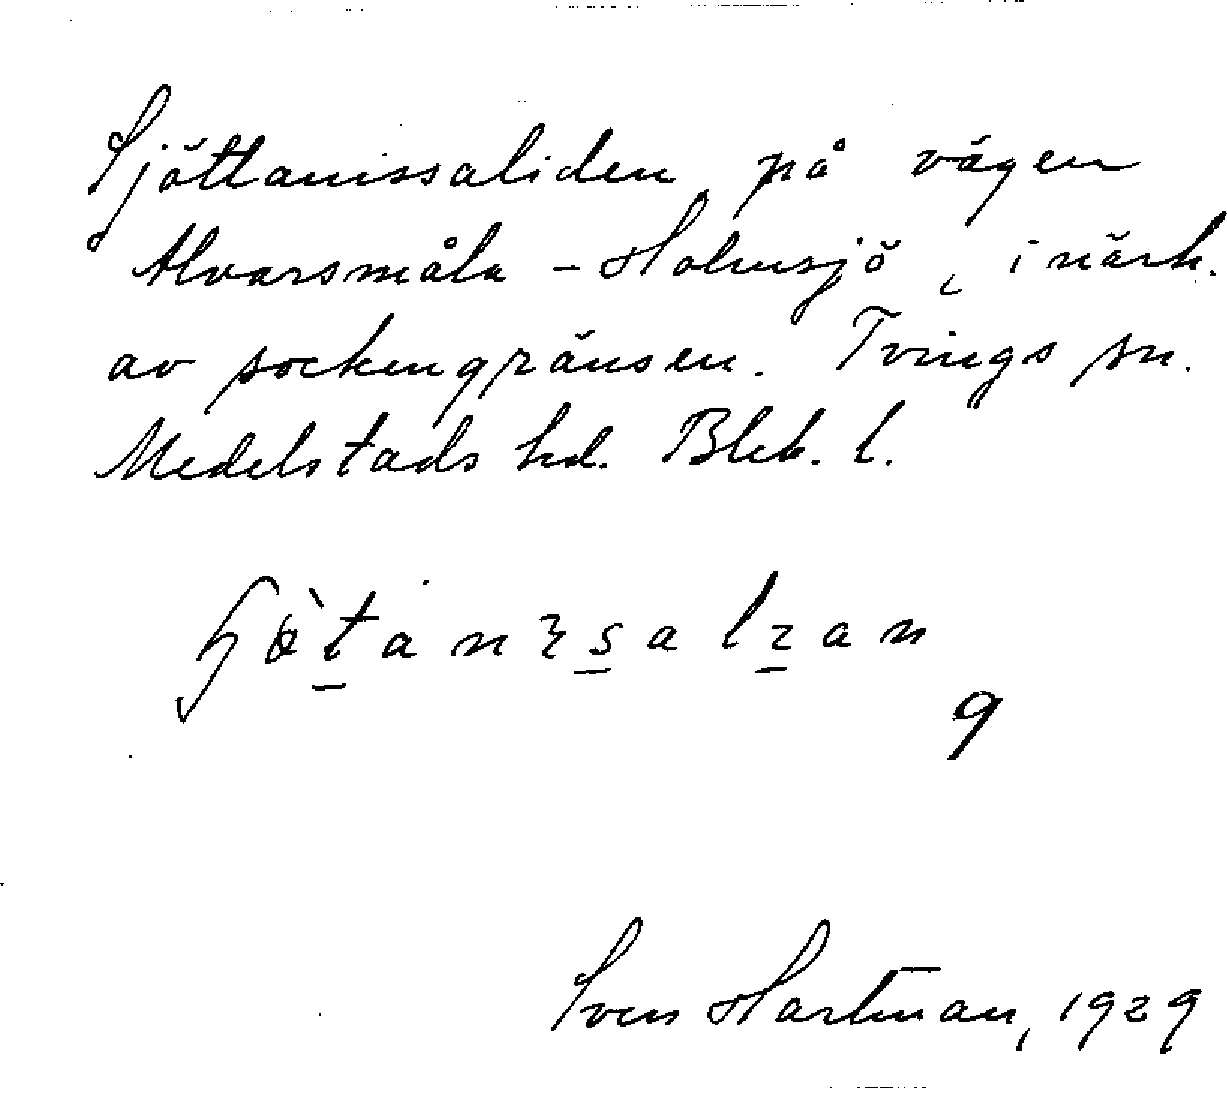 Sjöttanissaliden på vägen
Alvarsmåla - Holmsjö, i närh.
av sockengränsen. Tvings sn.
Medelstads hd. Blek. l.
9
Sven Hartman, 1929